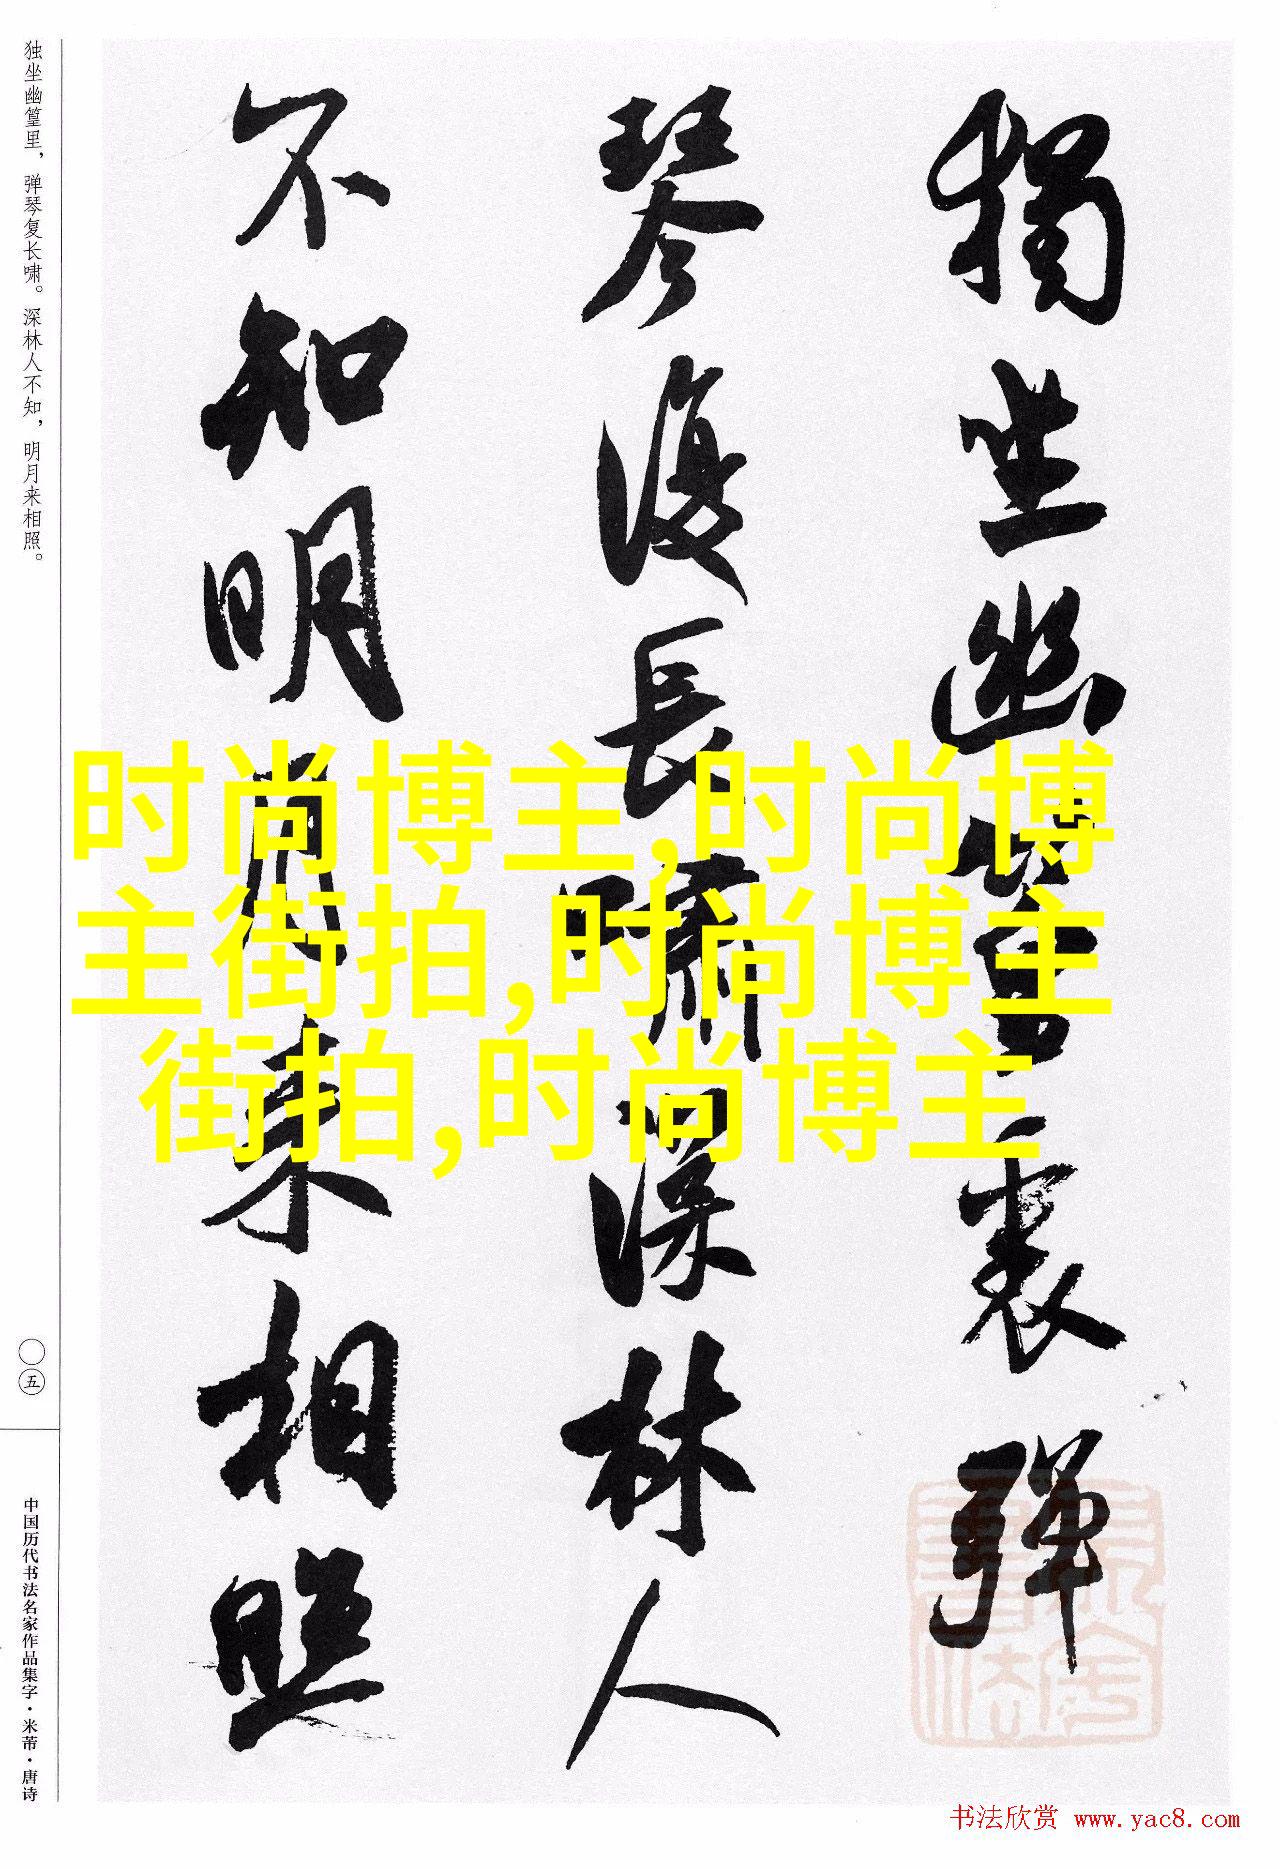 独坐幽篁里，弹琴复长啸。深林人不知，明月来相照。
〇五
中国历代书法名家作品集字·米芾·唐诗
獨坐幽篁裏彈
琴復長嘯深林人
不知明月来相照
时尚博主,时尚博
主街拍,时尚博主
街拍,时尚博主
书法欣赏 www.yac8.com